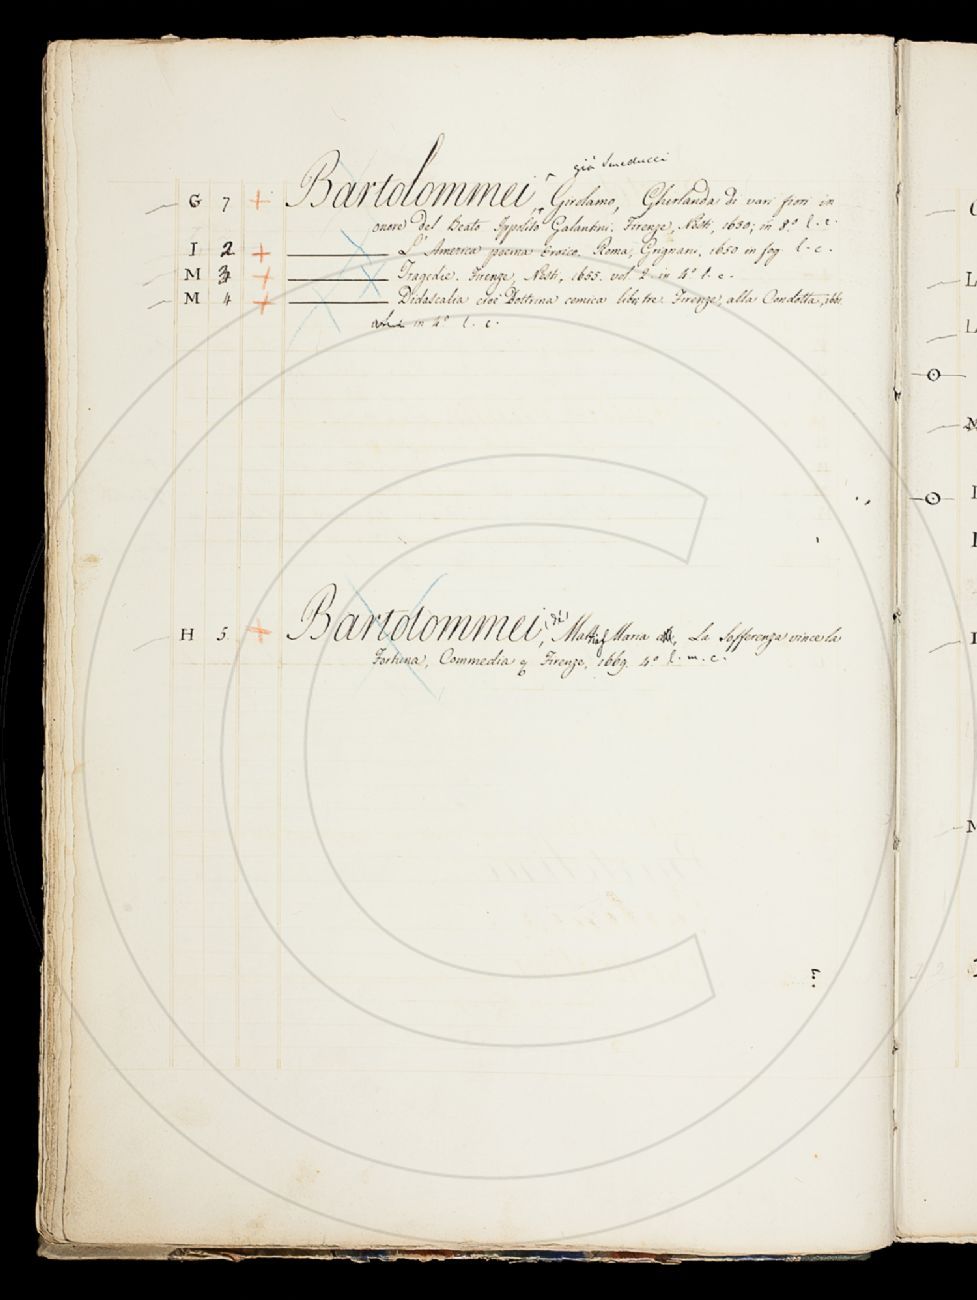 già Smeducci
G 7 + Bartolommei, Girolamo, Gherlanda di vari fiori in
onore del Beato Ippolito Galantini. Firenze, Nesti, 1650; in 8.° l. c.
I 2 + L'America poema Eroico. Roma, Grignani, 1650 in fog l. c.
M 3 + Tragedie. Firenze, Nesti, 1655. vol 2 in 4° l. c.
M 4 + Didascalia cioè Dottrina comica libri tre. Firenze, alla Condotta, 1661
in 4° l. c.
H 5 + Bartolommei, Mattias Maria de', La Sofferenza vince la
Fortuna, Commedia Firenze, 1669. 4° l. m. c.
G
L
L
M
I
I
I
M